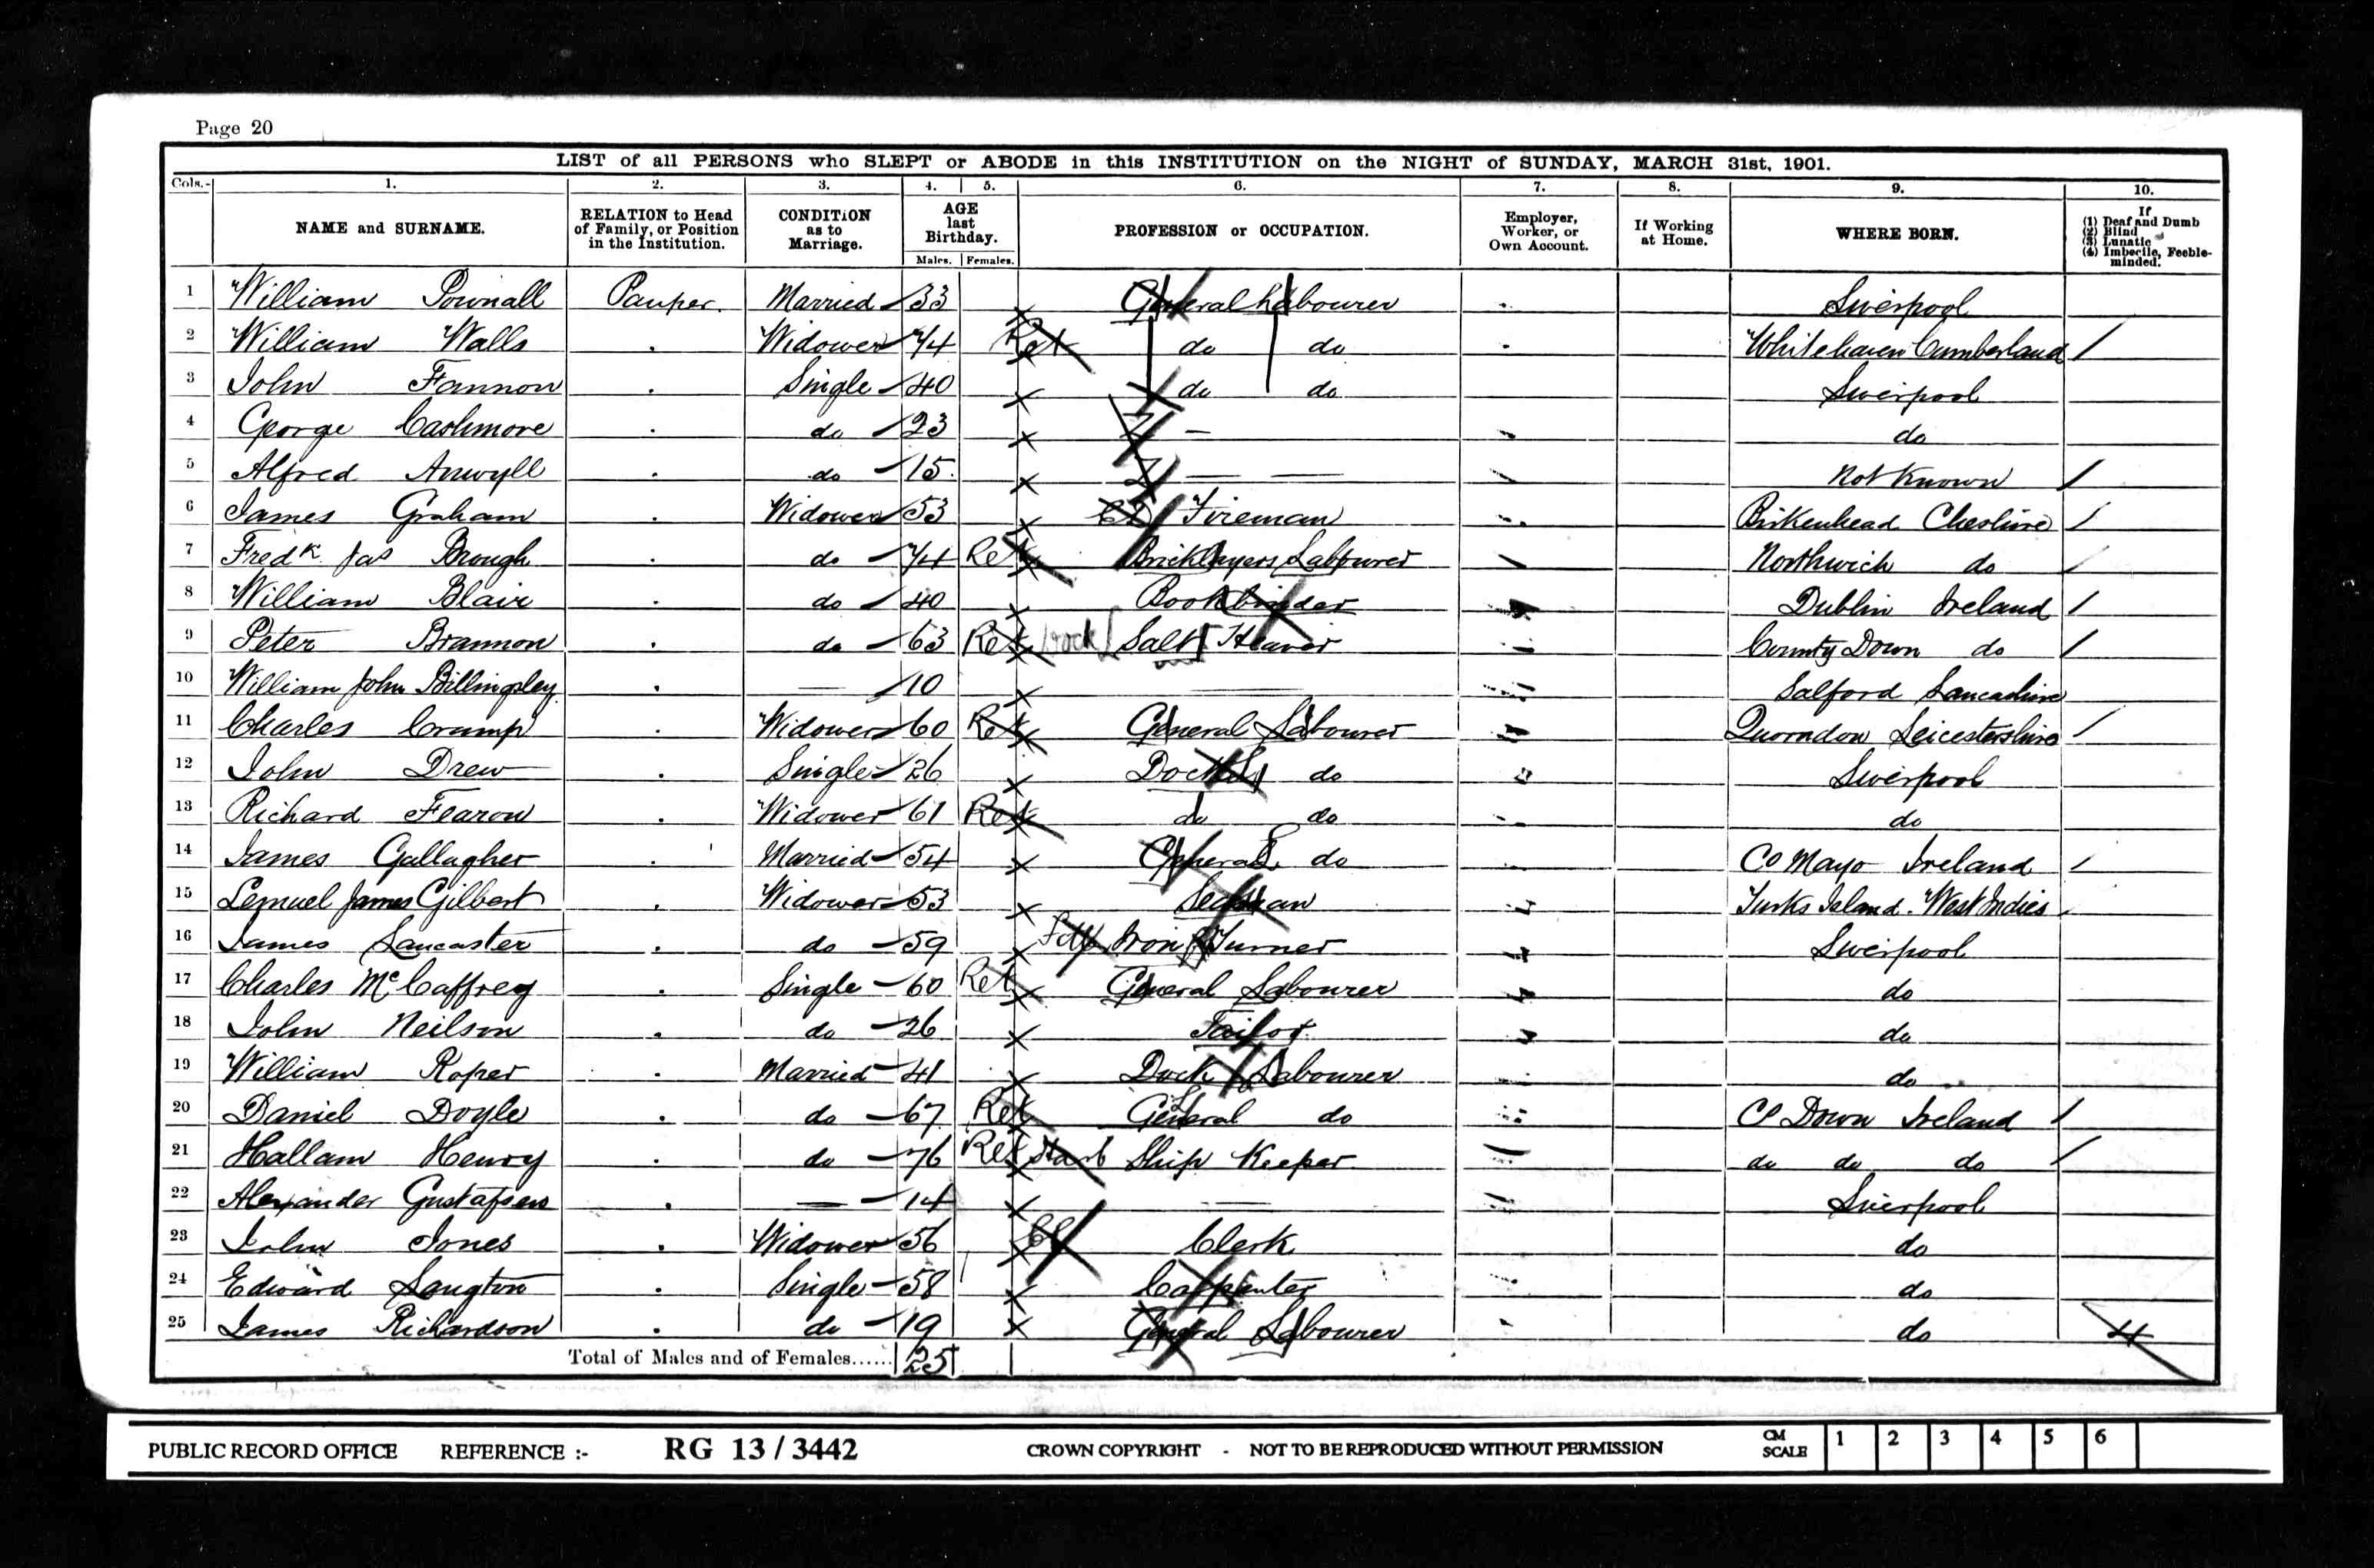 Page 20
LIST of all PERSONS who SLEPT or ABODE in this INSTITUTION on the NIGHT of SUNDAY, MARCH 31st, 1901.
Cols.- 1. 2. 3. 4. 5. 6. 7. 8. 9. 10.
NAME and SURNAME. RELATION to Head of Family, or Position in the Institution. CONDITION as to Marriage. AGE last Birthday. Males. Females. PROFESSION or OCCUPATION. Employer, Worker, or Own Account. If Working at Home. WHERE BORN. If (1) Deaf and Dumb (2) Blind (3) Lunatic (4) Imbecile, Feeble-minded.
1 William Pownall Pauper. Married 33 General Labourer Liverpool
2 William Walls Widower 74 Ret do do Whitehaven Cumberland
3 John Fannon Single 40 do do Liverpool
4 George Cashmore do 23 — do
5 Alfred Anwyll do 15 — — Not Known
6 James Graham Widower 53 Fireman Birkenhead Cheshire
7 Fredk Jas Brough do 74 Ret Bricklayers Labourer Northwich do
8 William Blair do 40 Bookbinder Dublin Ireland
9 Peter Brannon do 63 Ret [rock] Salt Heaver County Down do
10 William John Billingsley — 10 — Salford Lancashire
11 Charles Crump Widower 60 Ret General Labourer Quorndon Leicestershire
12 John Drew Single 26 Dock do Liverpool
13 Richard Fearon Widower 61 Ret do do do
14 James Gallagher Married 54 General do Co Mayo Ireland
15 Lemuel James Gilbert Widower 53 Seaman Turks Island. West Indies
16 James Lancaster do 59 Iron Turner Liverpool
17 Charles McCaffrey Single 60 Ret General Labourer do
18 John Neilson do 26 Tailor do
19 William Roper Married 41 Dock Labourer do
20 Daniel Doyle do 67 Ret General do Co Down Ireland
21 Hallam Henry do 76 Ret Ship Keeper do do do
22 Alexander Gustafsen — 14 — Liverpool
23 John Jones Widower 56 Clerk do
24 Edward Langton Single 58 Carpenter do
25 James Richardson do 19 General Labourer do 4
Total of Males and of Females...... 25
PUBLIC RECORD OFFICE REFERENCE :- RG 13 / 3442 CROWN COPYRIGHT - NOT TO BE REPRODUCED WITHOUT PERMISSION CM SCALE 1 2 3 4 5 6